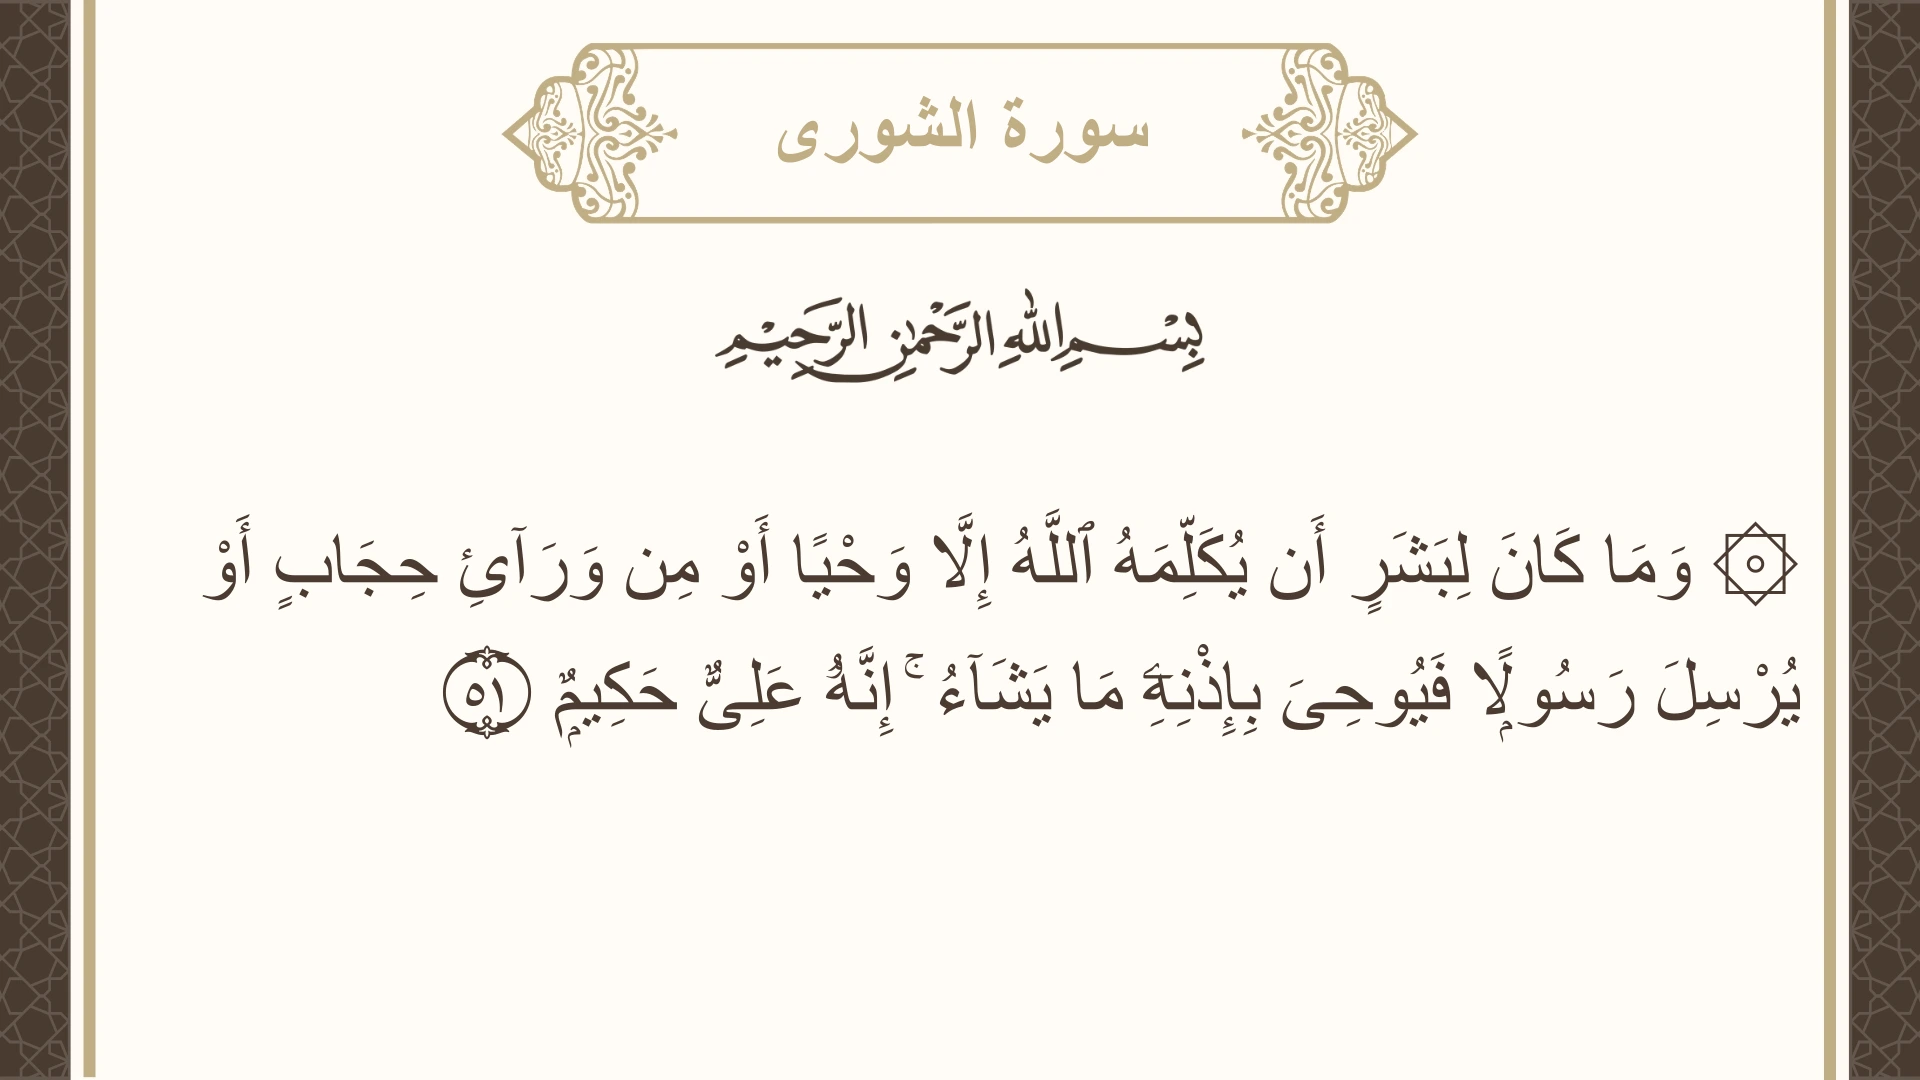 سورة الشورى
بِسْمِ اللهِ الرَّحْمٰنِ الرَّحِيْمِ
۞ وَمَا كَانَ لِبَشَرٍ أَن يُكَلِّمَهُ ٱللَّهُ إِلَّا وَحْيًا أَوْ مِن وَرَآئِ حِجَابٍ أَوْ
يُرْسِلَ رَسُولًۭا فَيُوحِىَ بِإِذْنِهِۦ مَا يَشَآءُ ۚ إِنَّهُۥ عَلِىٌّ حَكِيمٌۭ ٥١